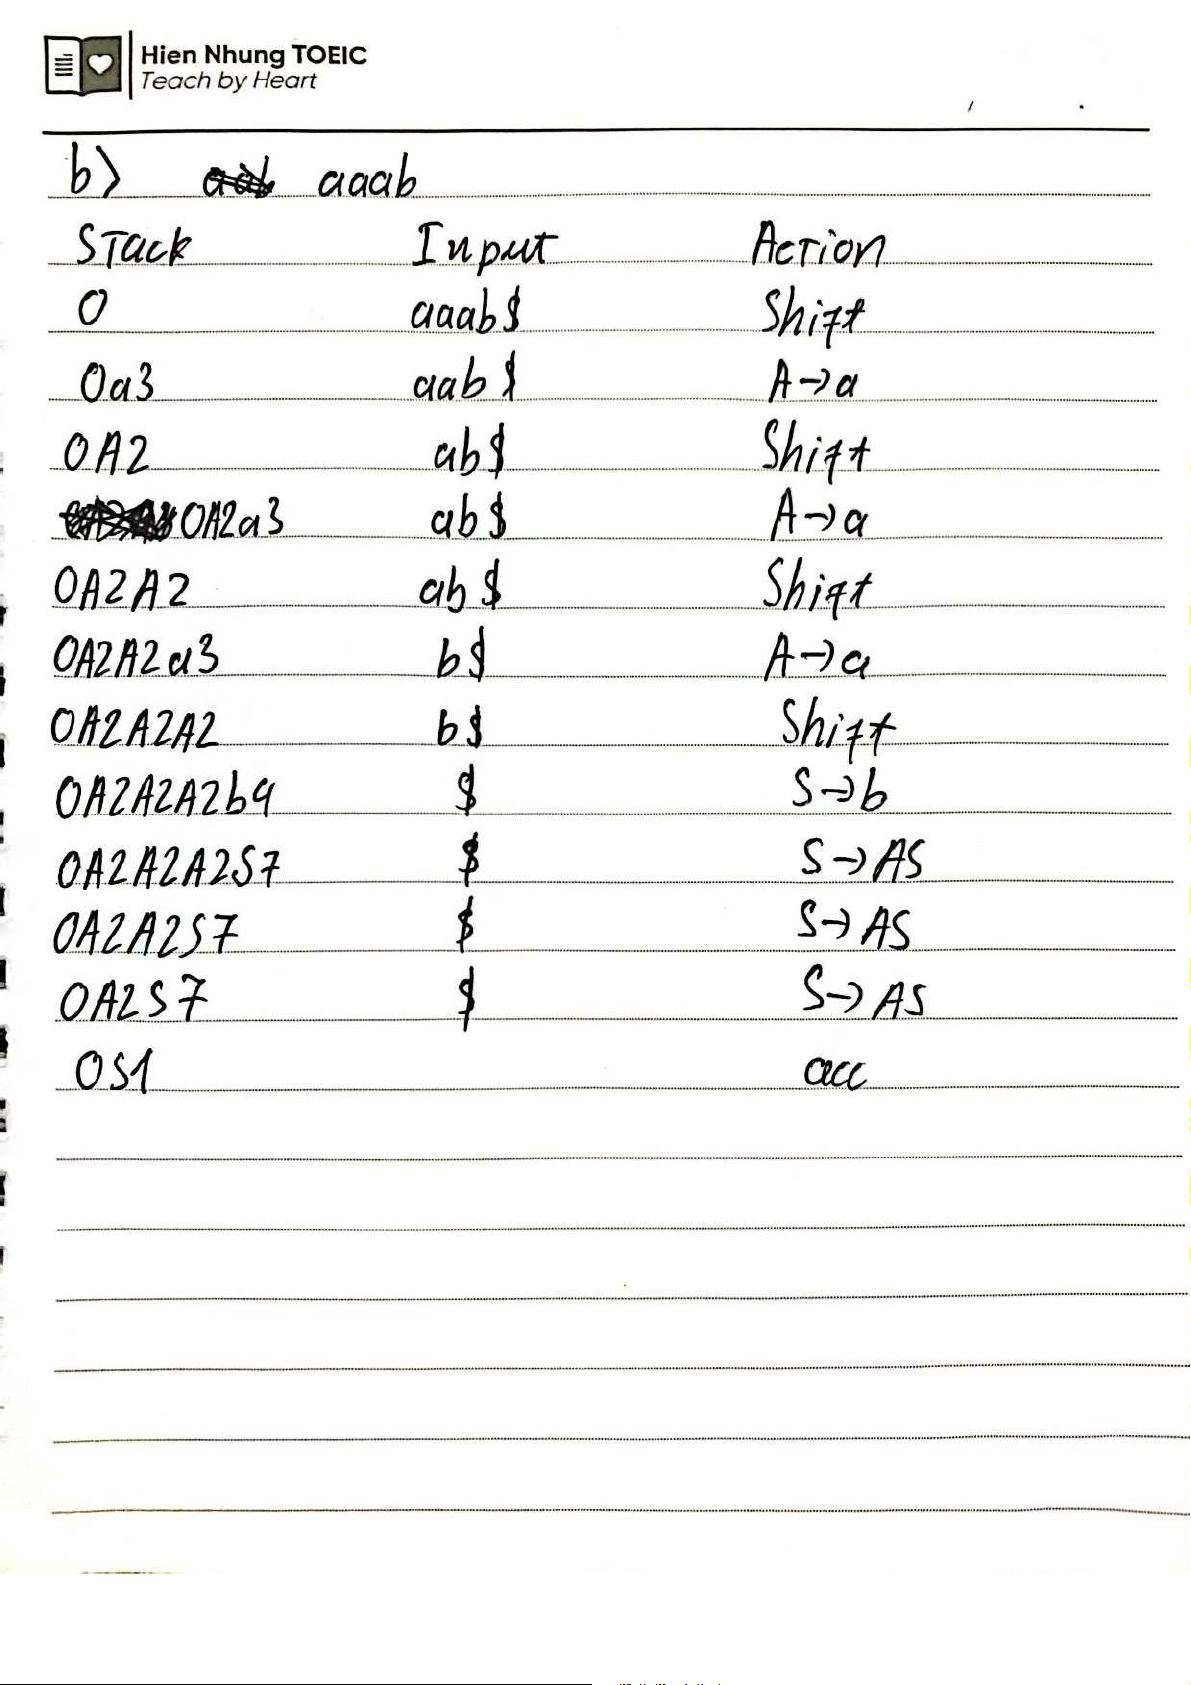 Hien Nhung TOEIC
Teach by Heart
b) aaab
Stack Input Action
0 aaab$ Shift
0a3 aab$ A→a
0A2 ab$ Shift
0A2a3 ab$ A→a
0A2A2 ab$ Shift
0A2A2a3 b$ A→a
0A2A2A2 b$ Shift
0A2A2A2b4 $ S→b
0A2A2A2S7 $ S→AS
0A2A2S7 $ S→AS
0A2S7 $ S→AS
0S1 acc